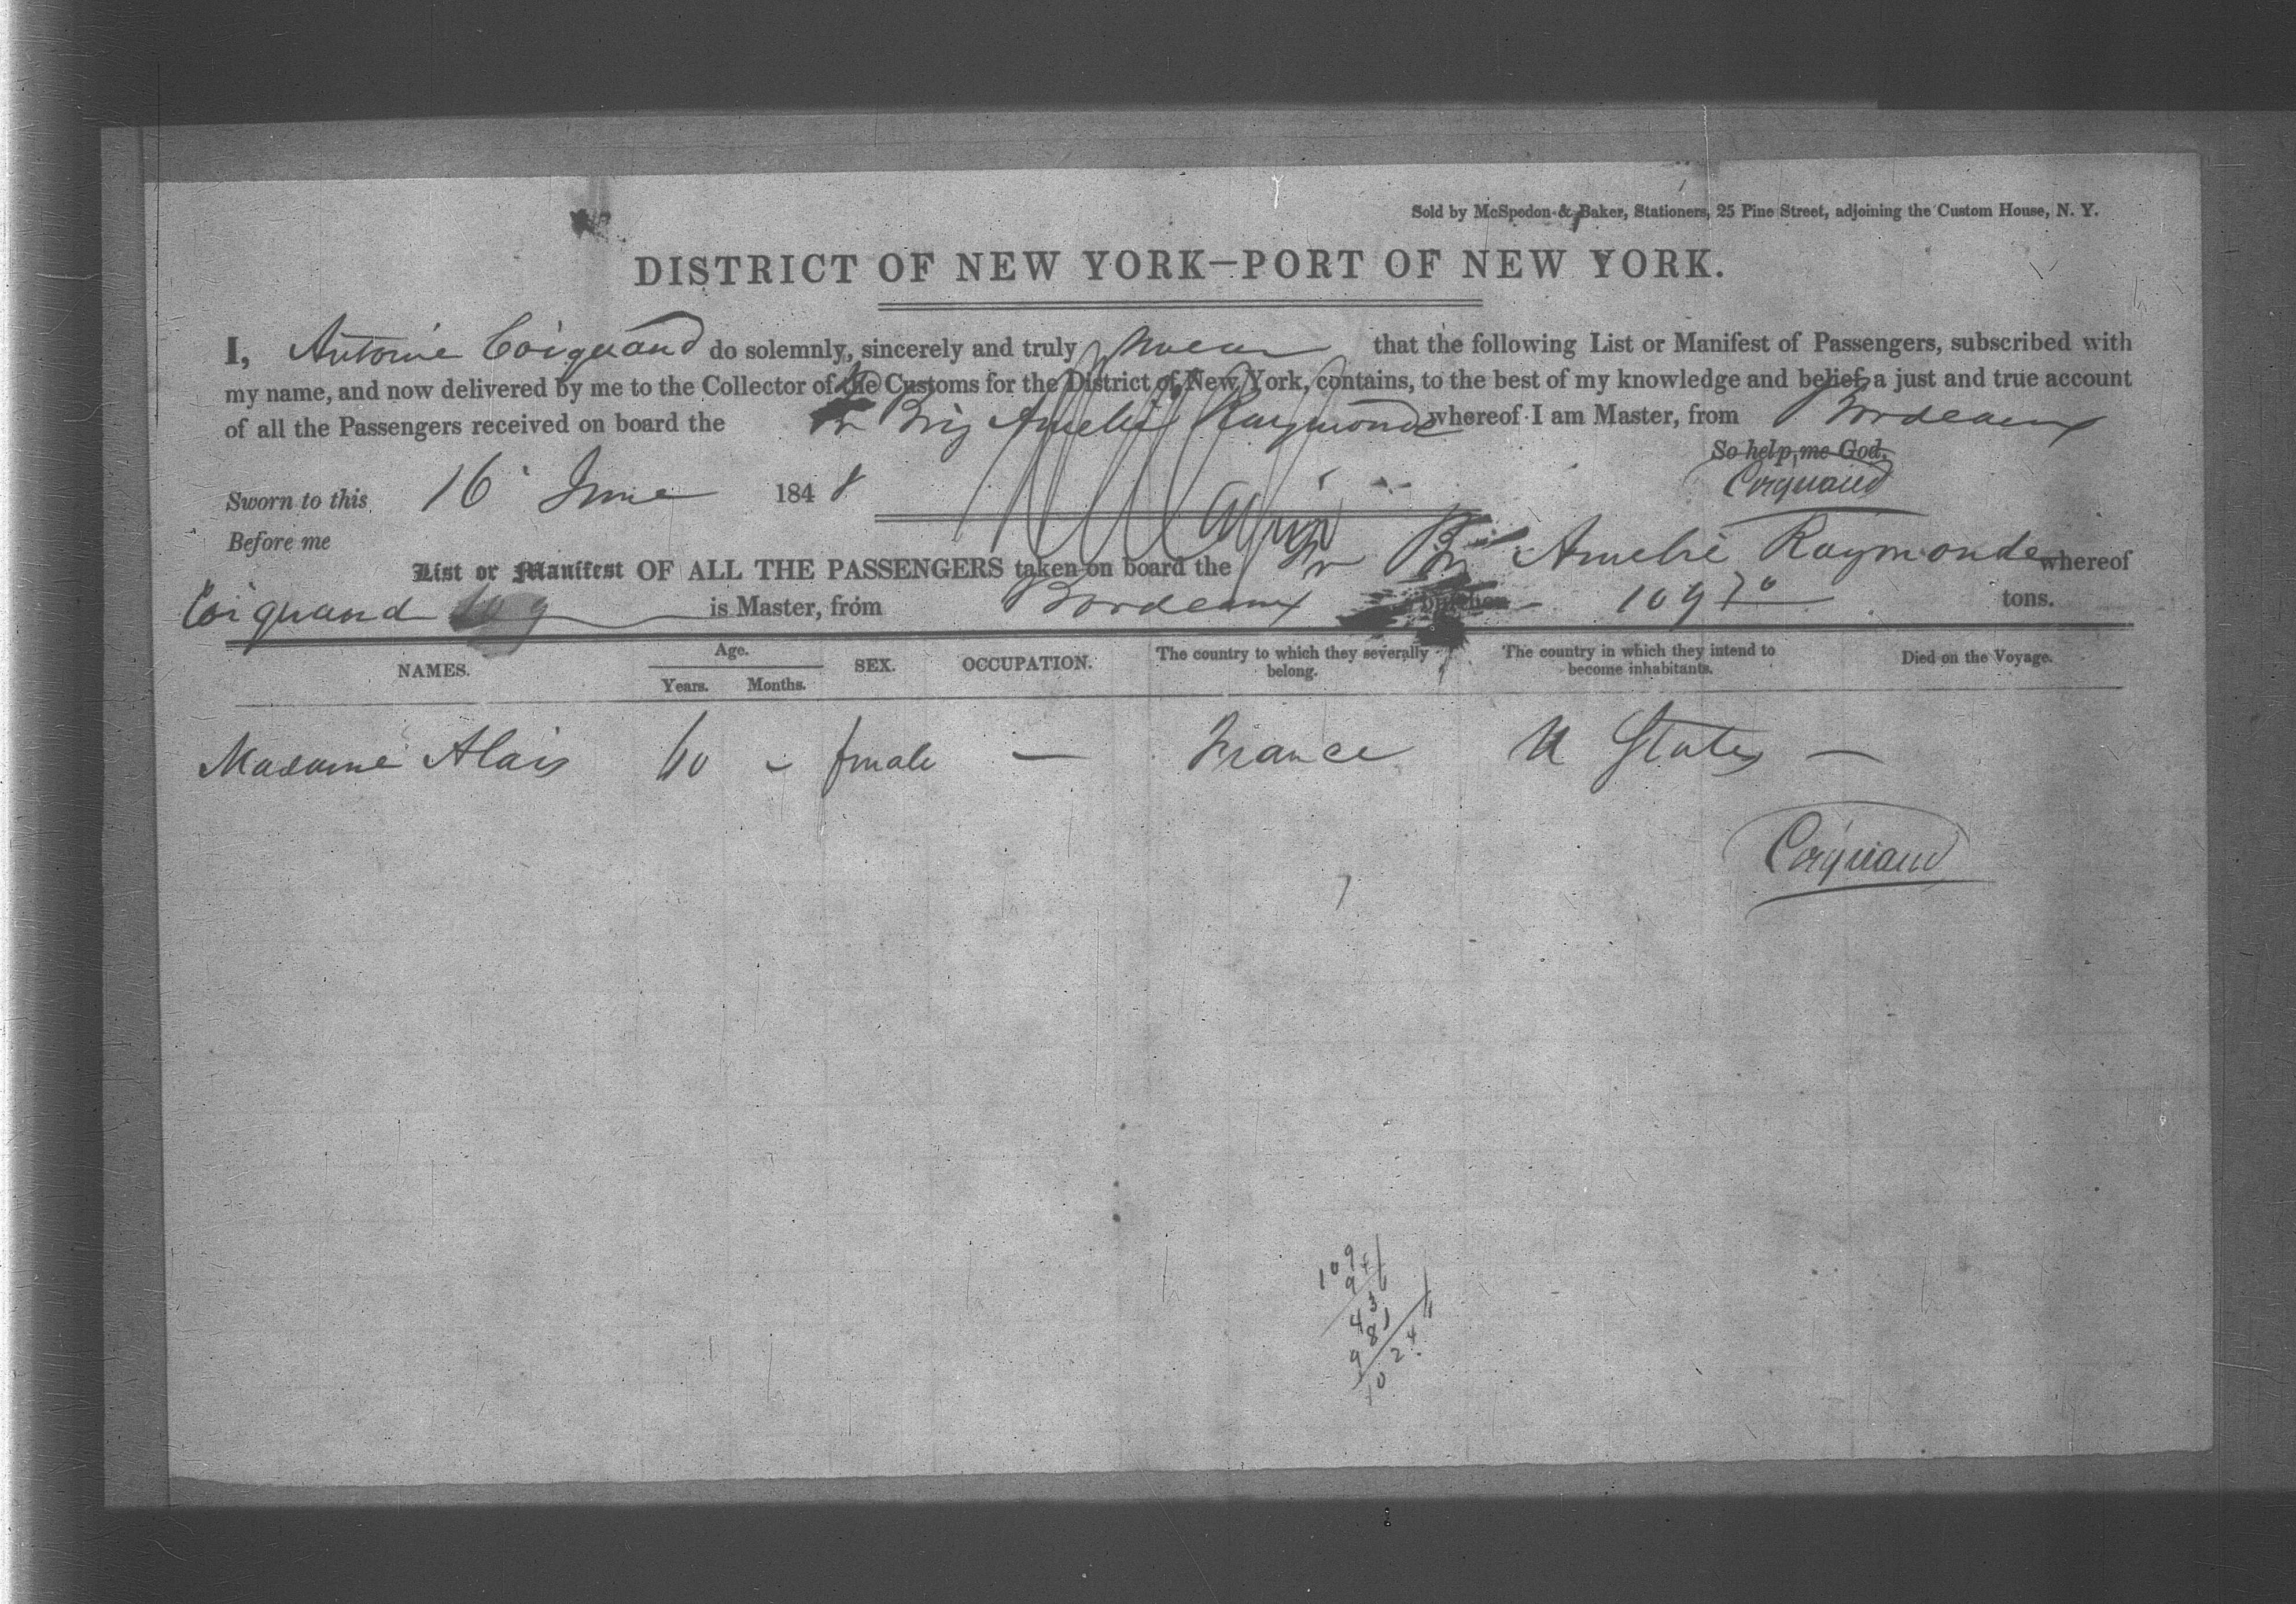 Sold by McSpedon & Baker, Stationers, 25 Pine Street, adjoining the Custom House, N. Y.
DISTRICT OF NEW YORK—PORT OF NEW YORK.
I, Antoine Coiquaud do solemnly, sincerely and truly swear that the following List or Manifest of Passengers, subscribed with
my name, and now delivered by me to the Collector of the Customs for the District of New York, contains, to the best of my knowledge and belief, a just and true account
of all the Passengers received on board the Fr Brig Amelie Raymonde whereof I am Master, from Bordeaux
So help me God.
Coiquaud
Sworn to this 16 June 1848
Before me
List or Manifest OF ALL THE PASSENGERS taken on board the Fr Brig Amelie Raymonde whereof
Coiquaud is Master, from Bordeaux burthen 109 70 tons.
NAMES. Age. Years. Months. SEX. OCCUPATION. The country to which they severally belong. The country in which they intend to become inhabitants. Died on the Voyage.
Madame Alais 60 – fmale — France U States —
Coiquaud
109